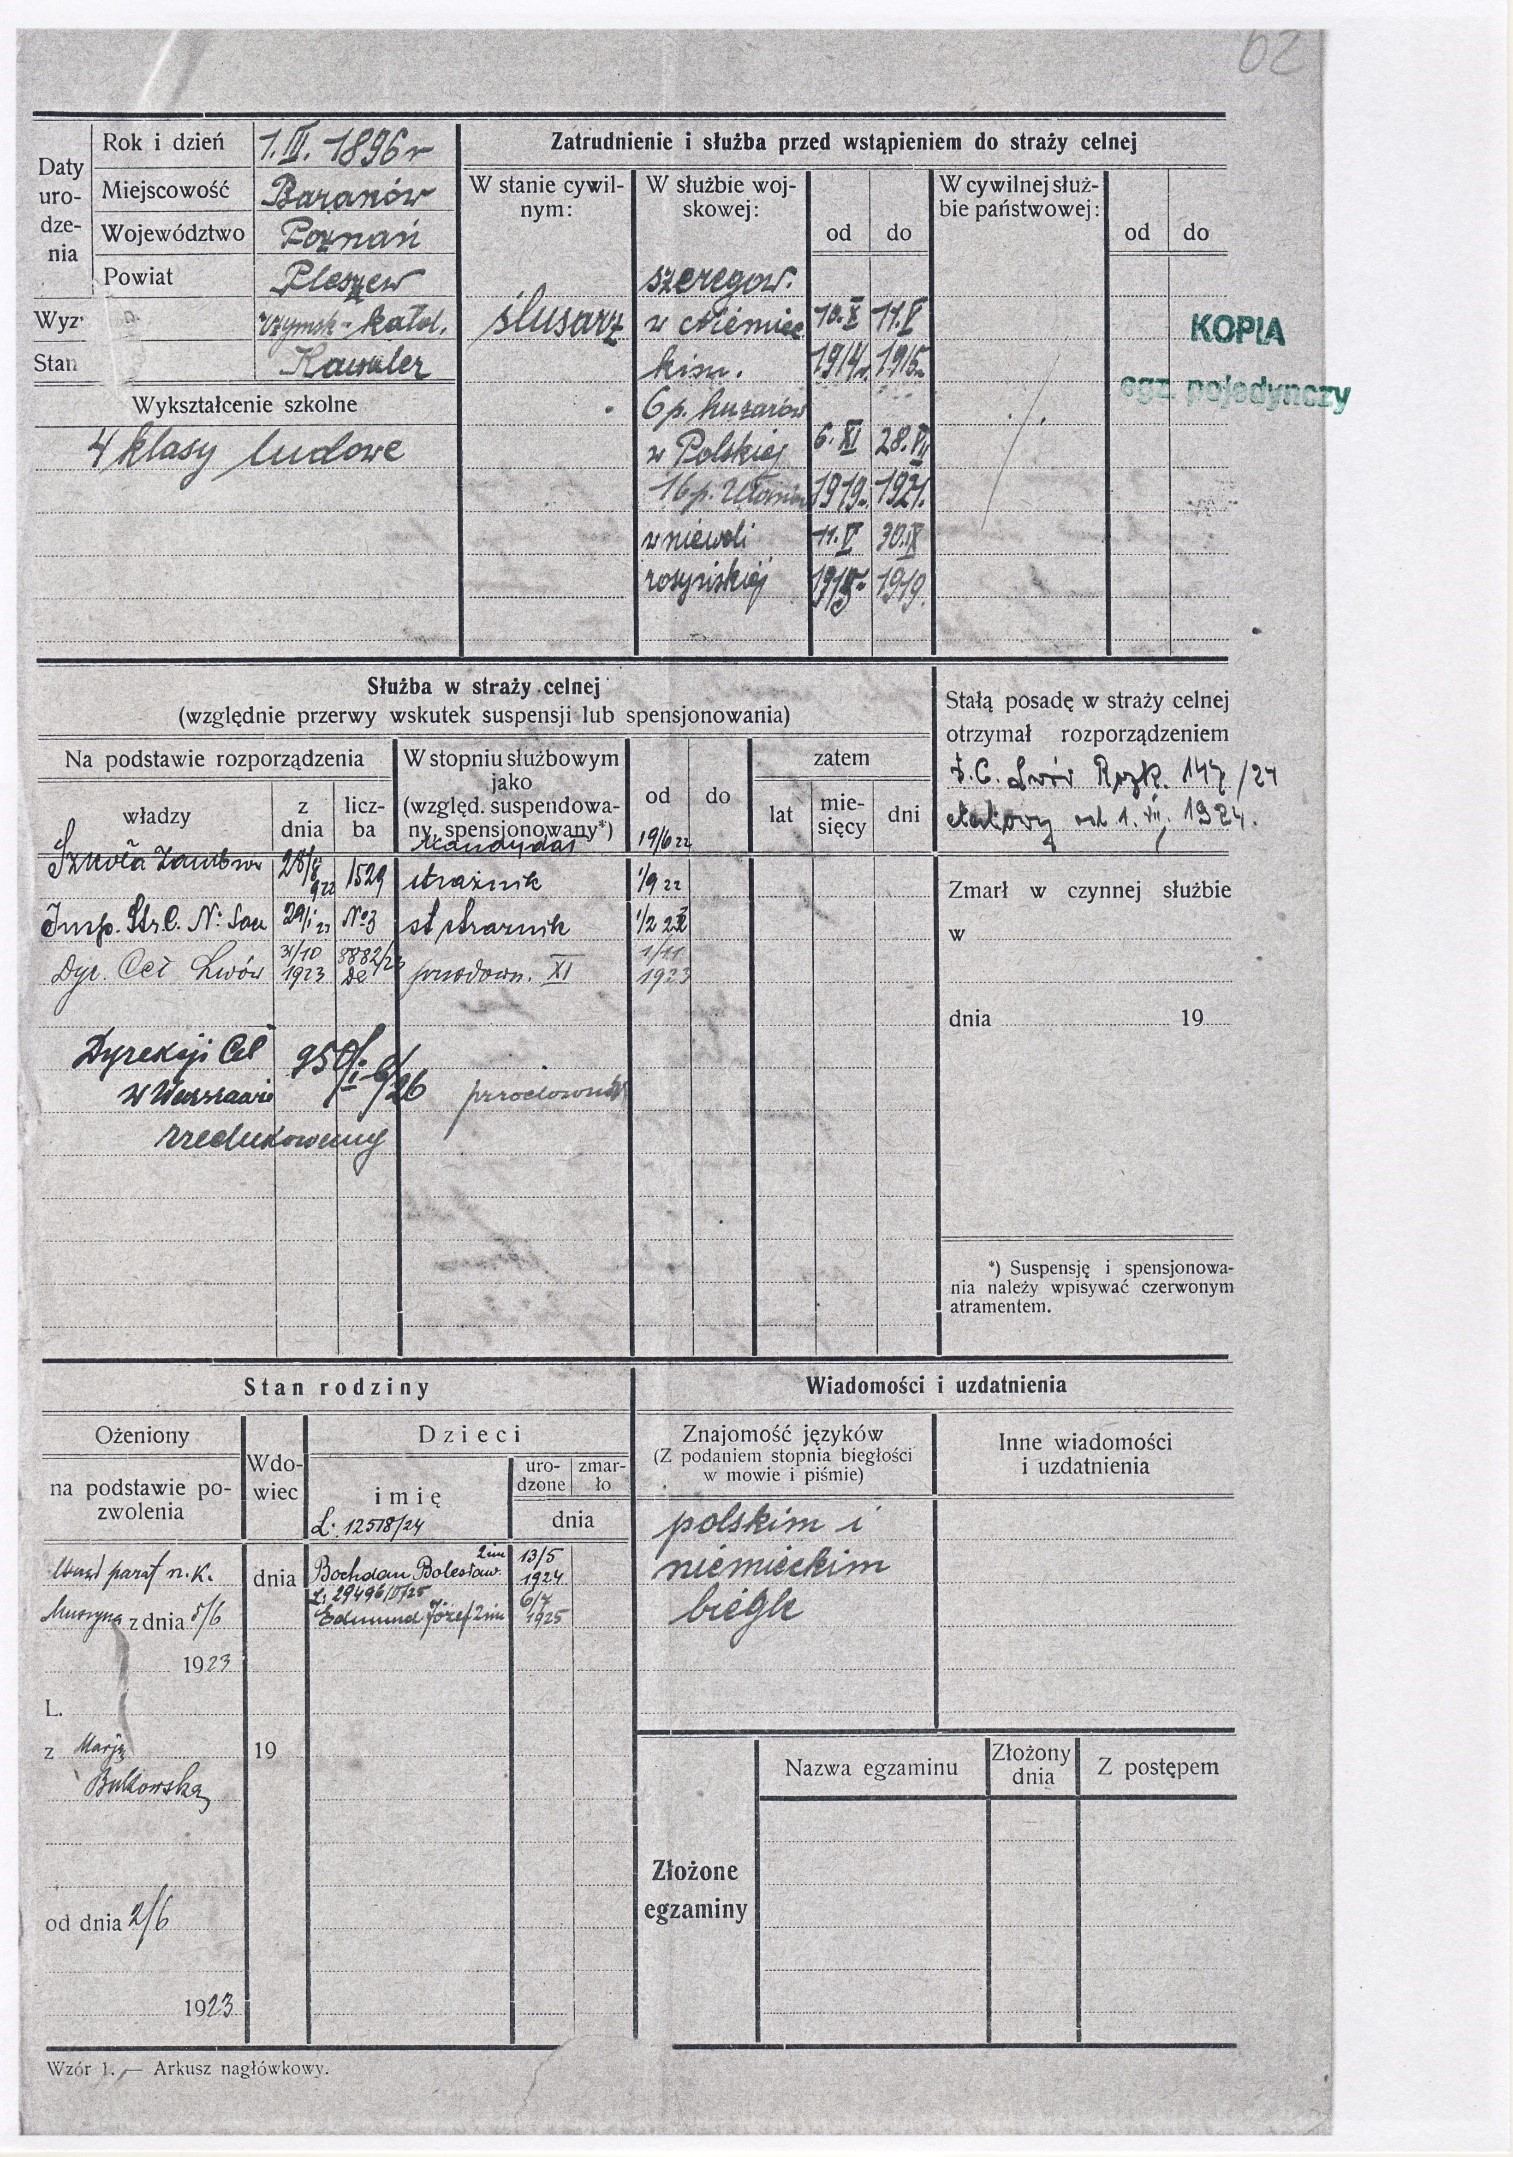 62
Daty urodzenia
Rok i dzień 1.III. 1896 r
Miejscowość Baranów
Województwo Poznań
Powiat Pleszew
Wyz rzymsk-katol.
Stan Kawaler
Wykształcenie szkolne
4 klasy ludowe
Zatrudnienie i służba przed wstąpieniem do straży celnej
W stanie cywil-
nym:
ślusarz
W służbie woj-
skowej:
od do
szeregow.
w Niemiec 10.X 11.V
kim. 1914r. 1915r.
6 p. huzarów
w Polskiej 6.XI 28.VII
16 p. Ułanów 1919r. 1921.
w niewoli 11.V 30.IX
rosyjskiej 1915r. 1919.
W cywilnej służ-
bie państwowej:
od do
KOPIA
egz. pojedynczy
Służba w straży celnej
(względnie przerwy wskutek suspensji lub spensjonowania)
Na podstawie rozporządzenia
władzy
z
dnia
licz-
ba
W stopniu służbowym
jako
(względ. suspendowa-
ny, spensjonowany*)
od do
zatem
lat
mie-
sięcy
dni
Kandydat 19/6 22
Szkoła 28/8 922 1529 strażnik 1/9 22
Insp. Str. C. N. Sącz 29/I 23 No 3 st strażnik 1/2
Dyr. Ceł Lwów 31/10 1923 8882/23 przodown. XI 1/11 1923
Dyrekcji Ceł
w Warszawie przodownik
zredukowany
Stałą posadę w straży celnej
otrzymał rozporządzeniem
D.C. Lwów Rozk. 147/24
etatowy od 1. VII. 1924.
Zmarł w czynnej służbie
w
dnia 19
*) Suspensję i spensjonowa-
nia należy wpisywać czerwonym
atramentem.
Stan rodziny
Ożeniony
na podstawie po-
zwolenia
Wdo-
wiec
Dzieci
imię
uro-
dzone
zmar-
ło
dnia
L: 12518/24
Urząd paraf r. k. dnia Bohdan Bolesław 2im 13/5 1924
L: 29496/II/25
Muszyna z dnia 5/6 Edmund Józef 2im 6/7 1925
1923
L.
z Marją 19
Bukowską
od dnia 2/6
1923
Wiadomości i uzdatnienia
Znajomość języków
(Z podaniem stopnia biegłości
w mowie i piśmie)
Inne wiadomości
i uzdatnienia
polskim i
niemieckim
biegle
Złożone
egzaminy
Nazwa egzaminu
Złożony
dnia
Z postępem
Wzór 1. — Arkusz nagłówkowy.